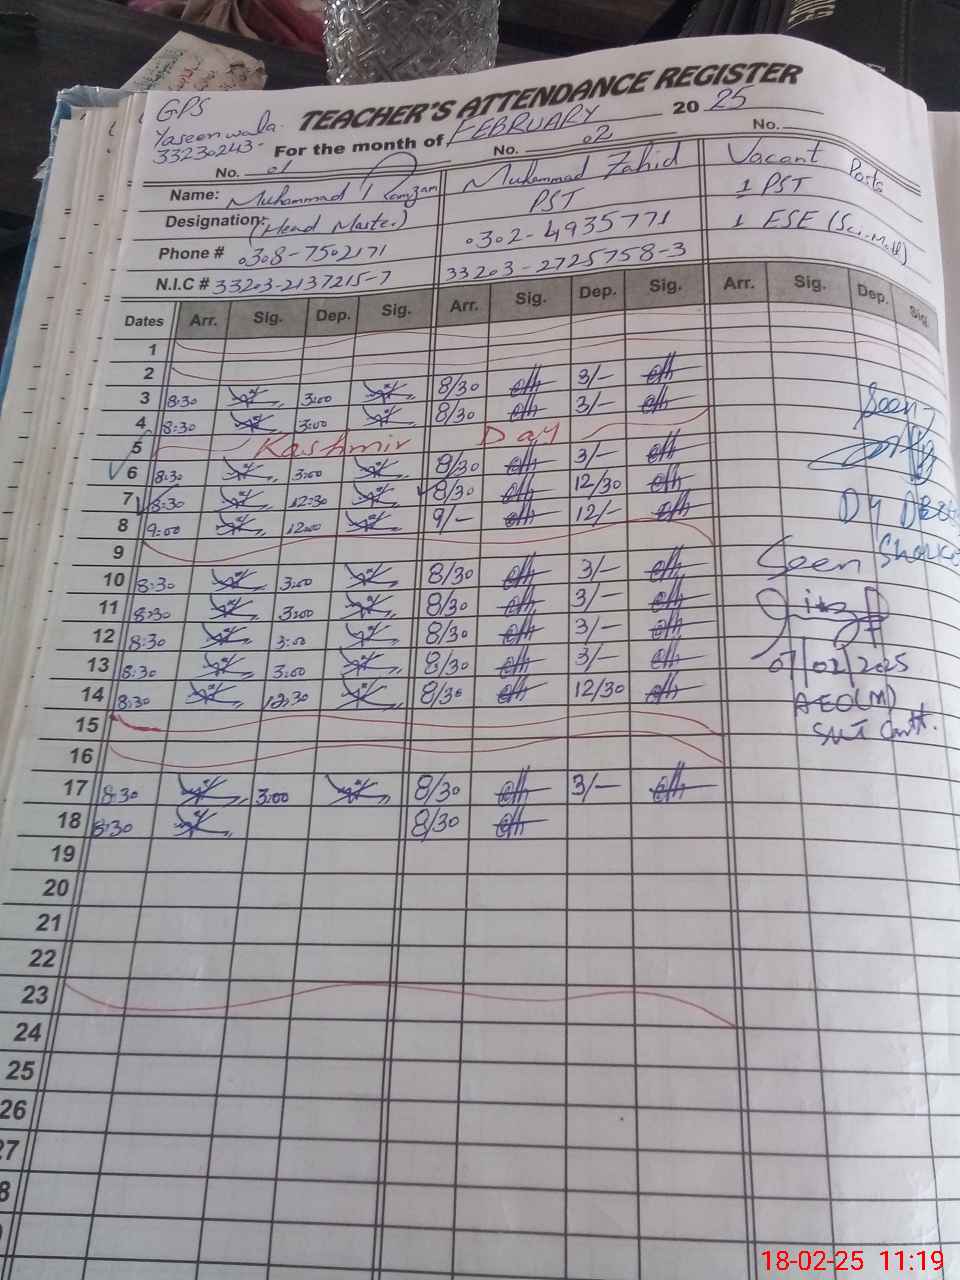 GPS
Yaseenwala.
33230243-
TEACHER'S ATTENDANCE REGISTER
For the month of FEBRUARY 2025
No. 01 No. 02 No.
Name: Muhammad Ramzan Muhammad Zahid Vacant Posts
Designation: (Head Master) PST 1 PST
Phone # 0308-7502171 0302-4935771 1 ESE (Sci-Math)
N.I.C # 33203-2137215-7 33203-2725758-3
Dates Arr. Sig. Dep. Sig. Arr. Sig. Dep. Sig. Arr. Sig. Dep. Sig.
1
2
3 8:30 3:00 8/30 3/-
4 8:30 3:00 8/30 3/-
5 Kashmir Day
6 8:30 3:00 8/30 3/-
7 8:30 12:30 8/30 12/30
8 9:00 12:00 9/- 12/-
9
10 8:30 3:00 8/30 3/-
11 8:30 3:00 8/30 3/-
12 8:30 3:00 8/30 3/-
13 8:30 3:00 8/30 3/-
14 8:30 12:30 8/30 12/30
15
16
17 8:30 3:00 8/30 3/-
18 8:30 8/30
19
20
21
22
23
24
25
26
27
8
Seen
Dy
Seen
07/02/2025
AEO(M)
18-02-25 11:19